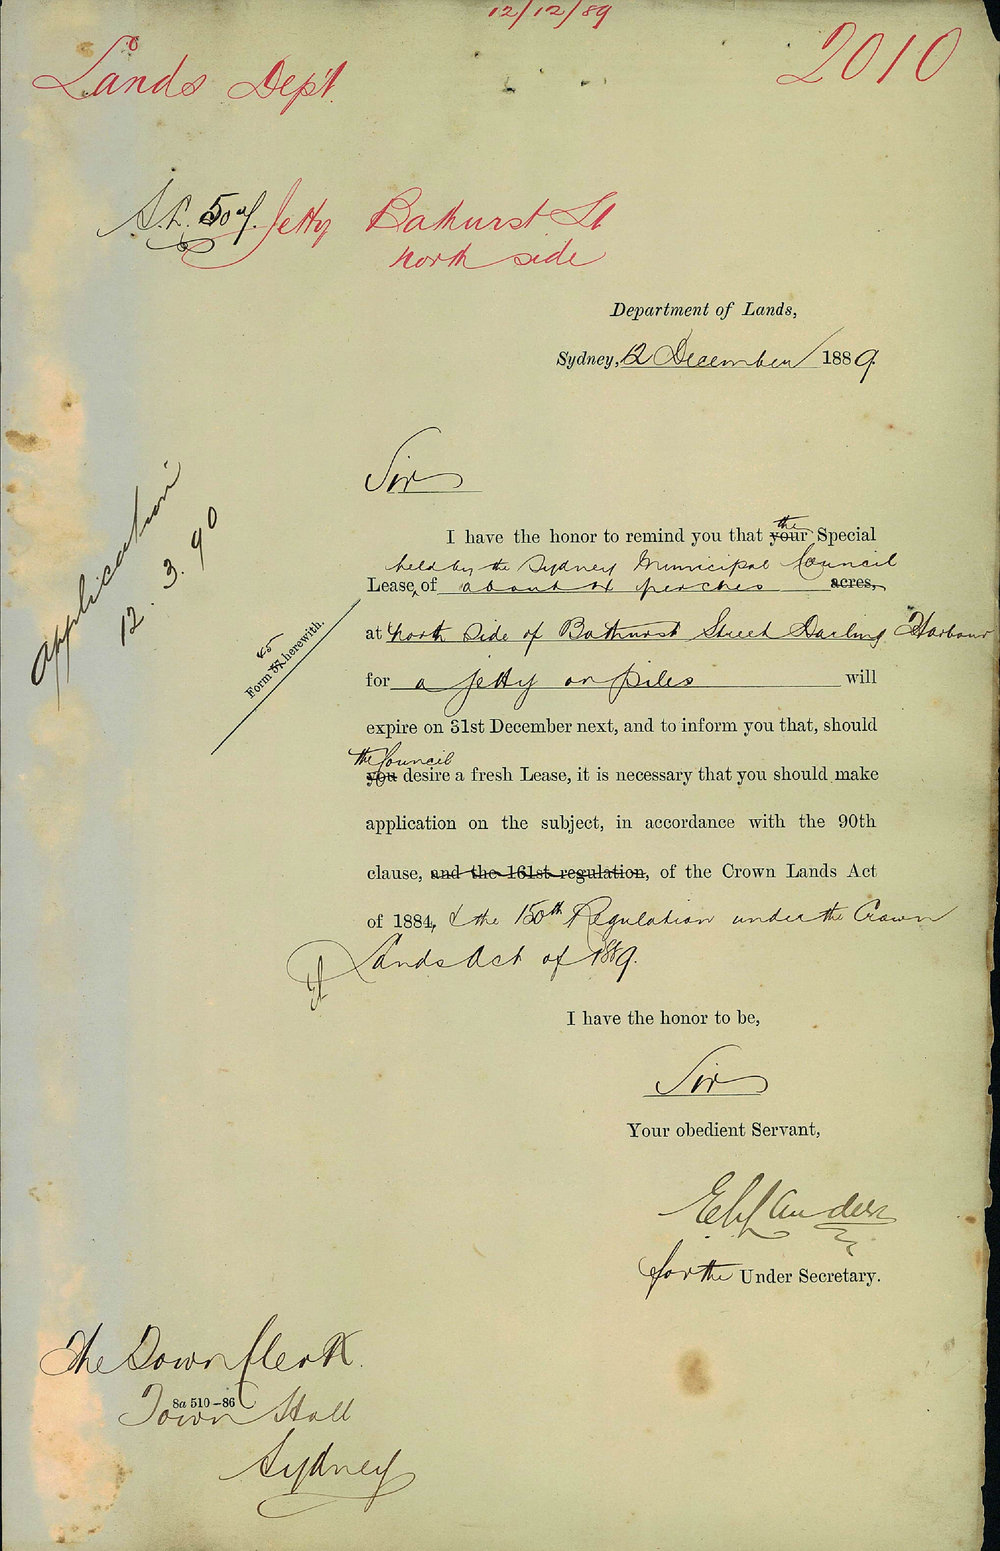 12/12/89
2010
Lands Dept
S.L. 50 of. Jetty Bathurst St
north side
Department of Lands,
Sydney, 12 December 1889.
Sir
the
I have the honor to remind you that your Special
held by the Sydney Municipal Council
Lease, of about perches acres,
at north side of Bathurst Street Darling Harbour
for a jetty on piles will
expire on 31st December next, and to inform you that, should
the Council
you desire a fresh Lease, it is necessary that you should make
application on the subject, in accordance with the 90th
clause, and the 161st regulation, of the Crown Lands Act
of 1884, & the 150th Regulation under the Crown
Lands Act of 1889.
application
12.3.90
45
Form 37 herewith.
I have the honor to be,
Sir
Your obedient Servant,
for the Under Secretary.
The Town Clerk.
8a 510–86
Town Hall
Sydney